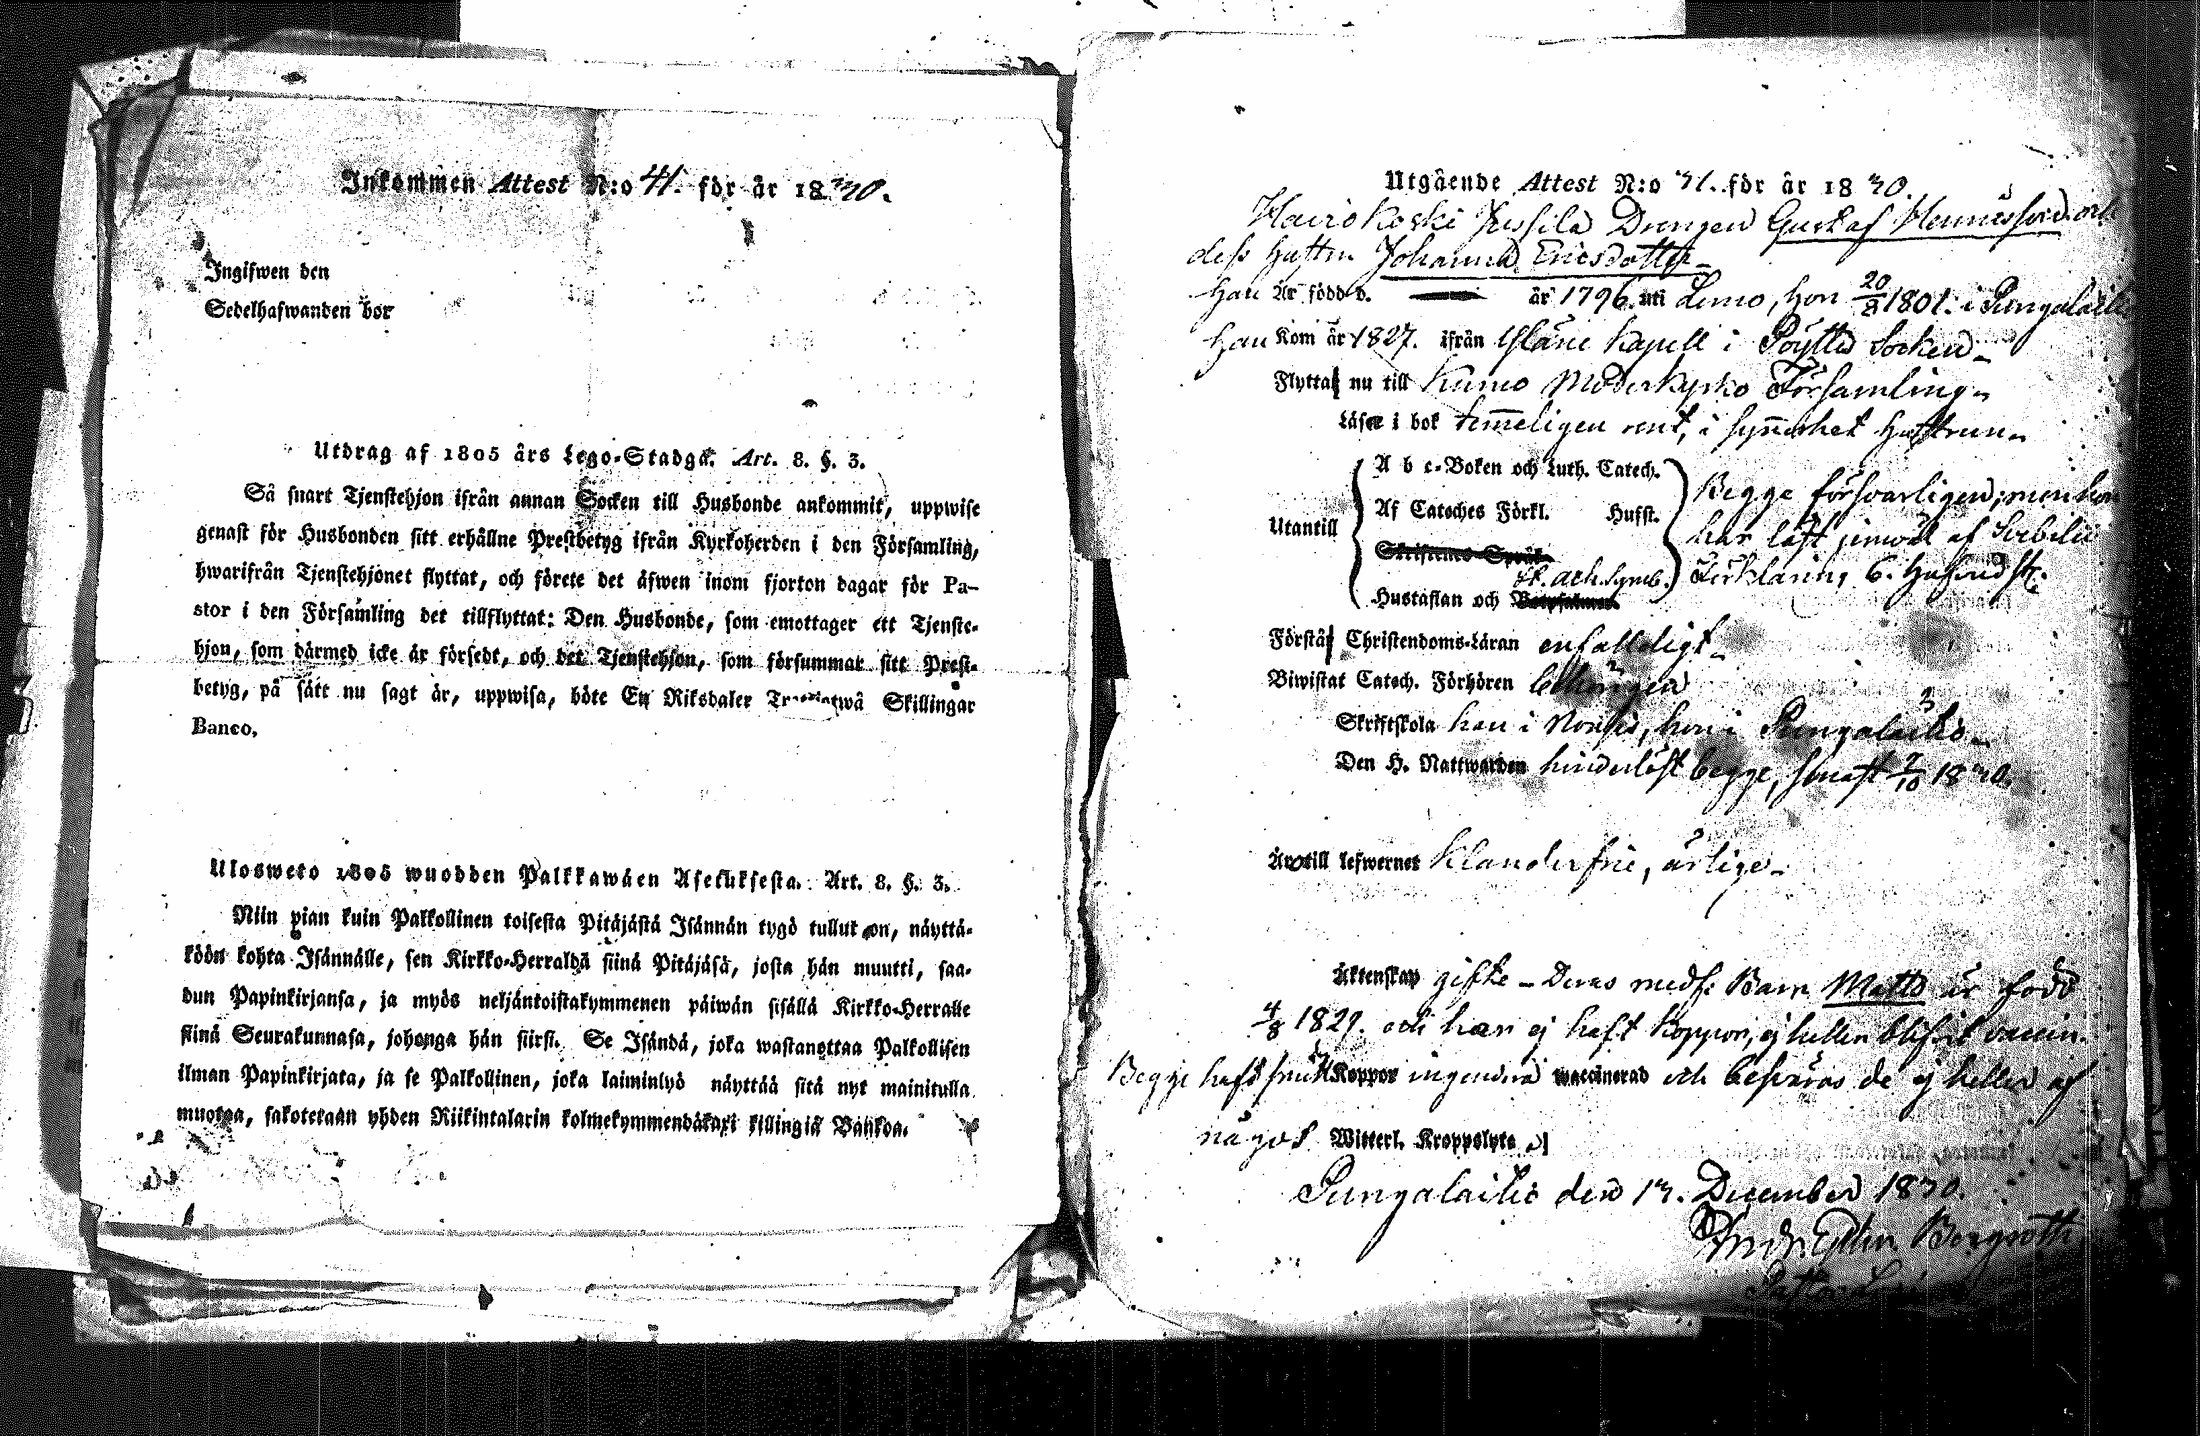 Inkommen Attest N:o 41. för år 1830.
Ingifwen den
Sedelhafwanden bor
Utdrag af 1805 års Lego-Stadga. Art. 8. §. 3.
Så snart Tjenstehjon ifrån annan Socken till Husbonde ankommit, uppwise
genast för Husbonden sitt erhållne Prestbetyg ifrån Kyrkoherden i den Församling,
hwarifrån Tjenstehjonet flyttat, och förete det äfwen inom fjorton dagar för Pa-
stor i den Församling det tillflyttat: Den Husbonde, som emottager ett Tjenste-
hjon, som därmed icke är försedt, och det Tjenstehjon, som försummar sitt Prest-
betyg, på sätt nu sagt är, uppwisa, böte En Riksdaler Trettiotwå Skillingar
Banco.
Ulosweto 1805 wuodden Palkkawäen Asetuksesta. Art. 8. §. 3.
Niin pian kuin Palkollinen toisesta Pitäjästä Isännän tygö tullut on, näyttä-
köön kohta Isännälle, sen Kirkko-Herralda siinä Pitäjäsä, josta hän muutti, saa-
dun Papinkirjansa, ja myös neljäntoistakymmenen päiwän sisällä Kirkko-Herralle
siinä Seurakunnasa, johonga hän siirsi. Se Isändä, joka wastanottaa Palkollisen
ilman Papinkirjata, ja se Palkollinen, joka laiminlyö näyttää sitä nyt mainitulla
muotoa, sakotetaan yhden Riikintalarin kolmekymmendäkaxi killingiä Bankoa.
Utgående Attest N:o 31. för år 1830.
Hairokoski Jussila Drengen Gustaf Hennicsson och
dess Hustru Johanna Ericsdotter
han Är född d. år 1796. uti Lemo, hon 20/8 1801. i Pungalaitio
han Kom år 1827. ifrån Yläne Kapell i Pöyttis Socken
Flytta nu till Kumo Moderkyrko Församling
Läser i bok temmeligen rent, i synnerhet Hustrun
A b c-Boken och Luth. Catech. Begge försvarligen; men hon
Utantill Af Catoches Förkl. Hufst. har läst jemväl af Svebilii
Skriftenes Språk Förklaring 6. Hufvudst.
och Ath. Symb.
Hustaflan och
Förstå Christendoms-Läran enfalldigt
Biwistat Catech. Förhören behörigen
Skriftskola han i Nousis, hon i Pungalaitio
Den H. Nattwarden hinderlöst begge, senast 3/10 1830.
Är till lefwernet klanderfrie, ärlige
Äktenskap gifte - Deras medf. Barn Matts är född
4/8 1829. och har ej haft koppor, ej heller blifvit vaccin.
Begge haft Koppor ingendera waccinerad och besväras de ej heller af
något Witterl. Kroppslyte
Pungalaitio den 13. December 1830.
Bergroth